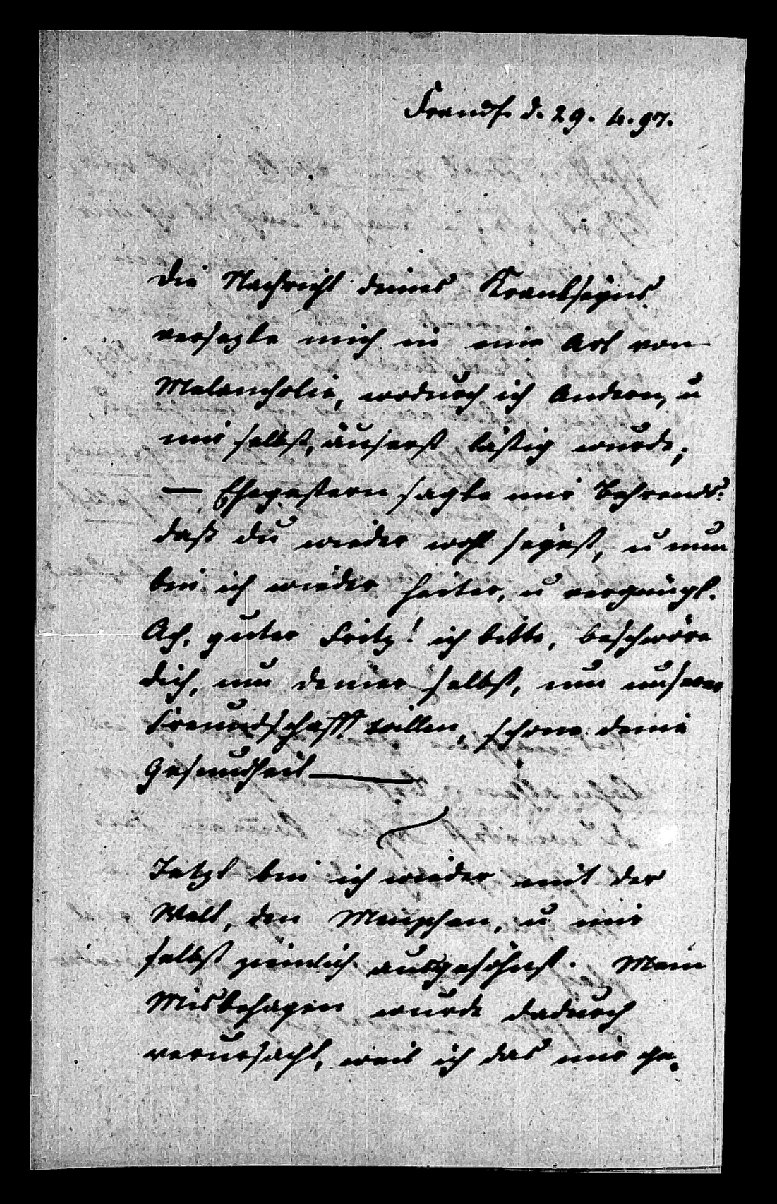 Frondf. d. 29. 4. 97.
Die Nachricht deines Krankseyns
versezte mich in eine Art von
Melancholie, wodurch ich Andern, u
mir selbst, äuserst lästig wurde;
— Ehegestern sagte mir Behrends:
daß du wieder wohl seyest, u nun
bin ich wieder heiter, u vergnügt.
Ach, guter Fritz! ich bitte, beschwöre
dich, um deiner selbst, um unserer
Freundschafft willen, schone deine
Gesundheit —
Jetzt bin ich wieder mit der
Welt, den Menschen, u mir
selbst ziemlich ausgesöhnt. Mein
Misbehagen wurde dadurch
verursacht, weil ich das mir ge-